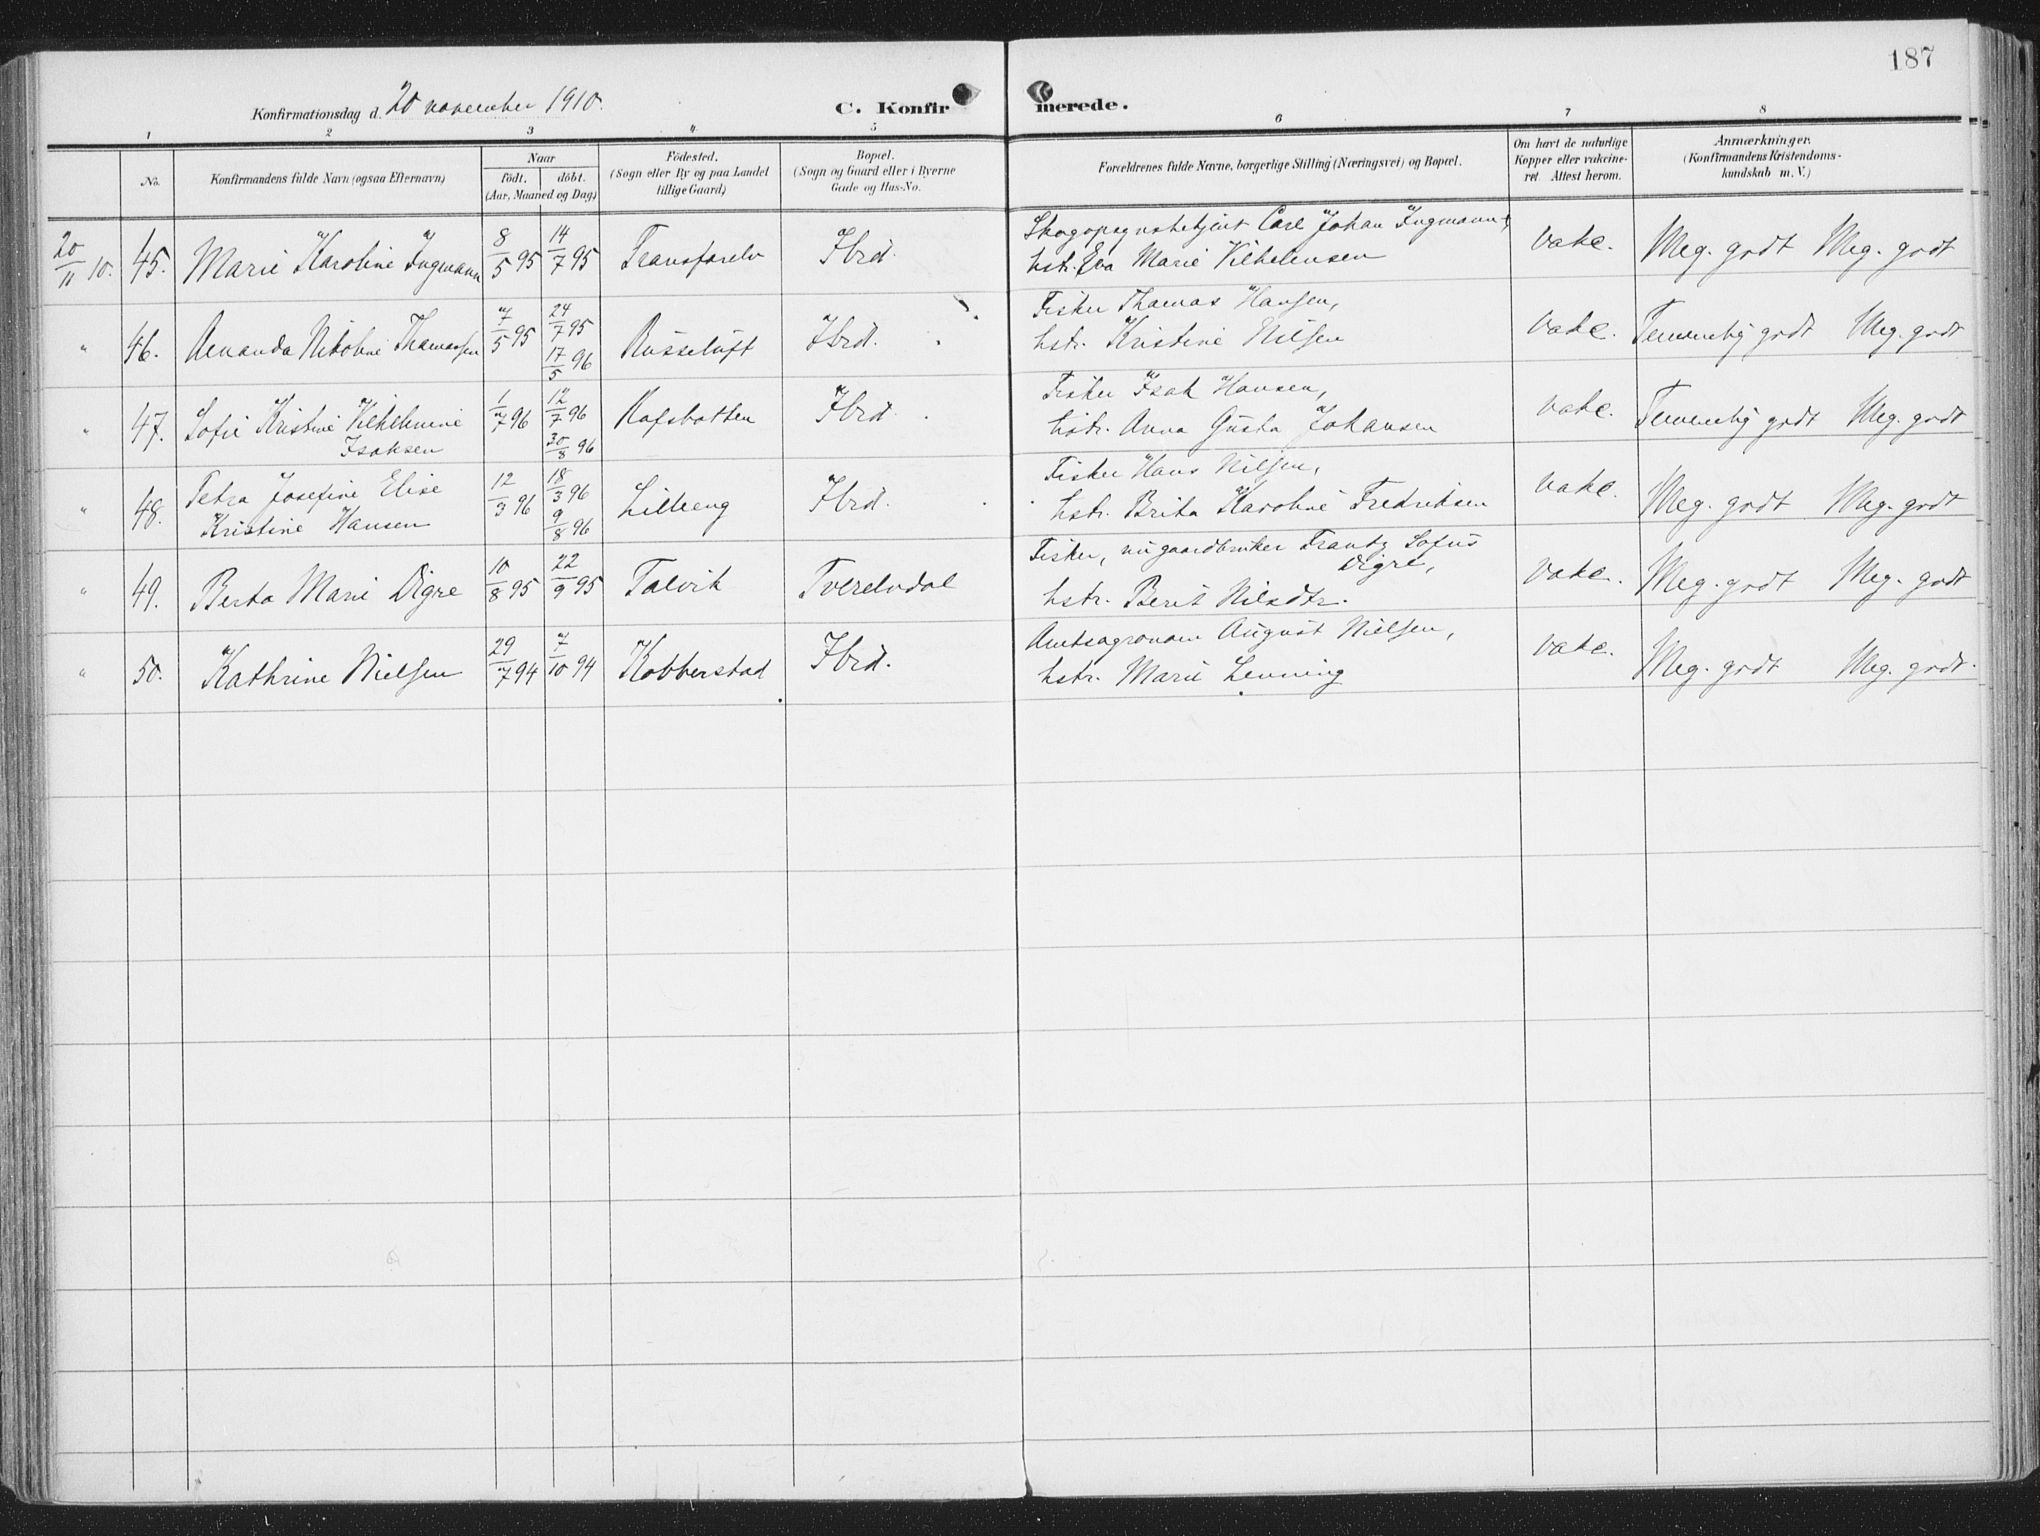 187
Konfirmationsdag d. 20 november 1910.
C. Konfirmerede.
1 2 3 4 5 6 7 8
No.
Konfirmandens fulde Navn (ogsaa Efternavn)
Naar
födt. döbt.
(Aar, Maaned og Dag)
Födested.
(Sogn eller By og paa Landet
tillige Gaard)
Bopæl.
(Sogn og Gaard eller i Byerne
Gade og Hus-No.
Forældrenes fulde Navne, borgerlige Stilling (Næringsvei) og Bopæl.
Om havt de naturlige
Kopper eller vakcine-
ret Attest herom.
Anmærkninger.
(Konfirmandens Kristendoms-
kundskab m. V.)
20/11 10. 45. Marie Karoline Ingmann 8/5 95 14/7 95 Transfarelv Ibid. Skogopsynsbetjent Carl Johan Ingmann,
hstr. Eva Marie Vilhelmsen vakc. Meg. godt Meg. godt
" 46. Amanda Nikoline Thomassen 7/5 95 24/7 95
17/5 96 Russeluft Ibid. Fisker Thomas Hansen,
hstr. Kristine Nilsen vakc. Temmelig godt Meg. godt
" 47. Sofie Kristine Vilhelmine
Isaksen 1/7 96 12/7 96
30/8 96 Rafsbotten Ibid. Fisker Isak Hansen,
hstr. Anna Gusta Johansen vakc. Temmelig godt Meg. godt
" 48. Petra Josefine Elise
Kristine Hansen 12/3 96 18/3 96
9/8 96 Lilleeng Ibid. Fisker Hans Nilsen,
hstr. Brita Karoline Fredriksen vakc. Meg. godt Meg. godt
" 49. Berta Marie Digre 10/8 95 22/9 95 Talvik Tverelvdal Fisker, nu gaardbruker Frantz Sofus
Digre,
hstr. Berit Nilsdtr. vakc. Meg. godt Meg. godt
" 50. Kathrine Nielsen 29/7 94 7/10 94 Kobberstad Ibid. Amtsagronom August Nielsen,
hstr. Marie Lenning vakc. Meg. godt Meg. godt.